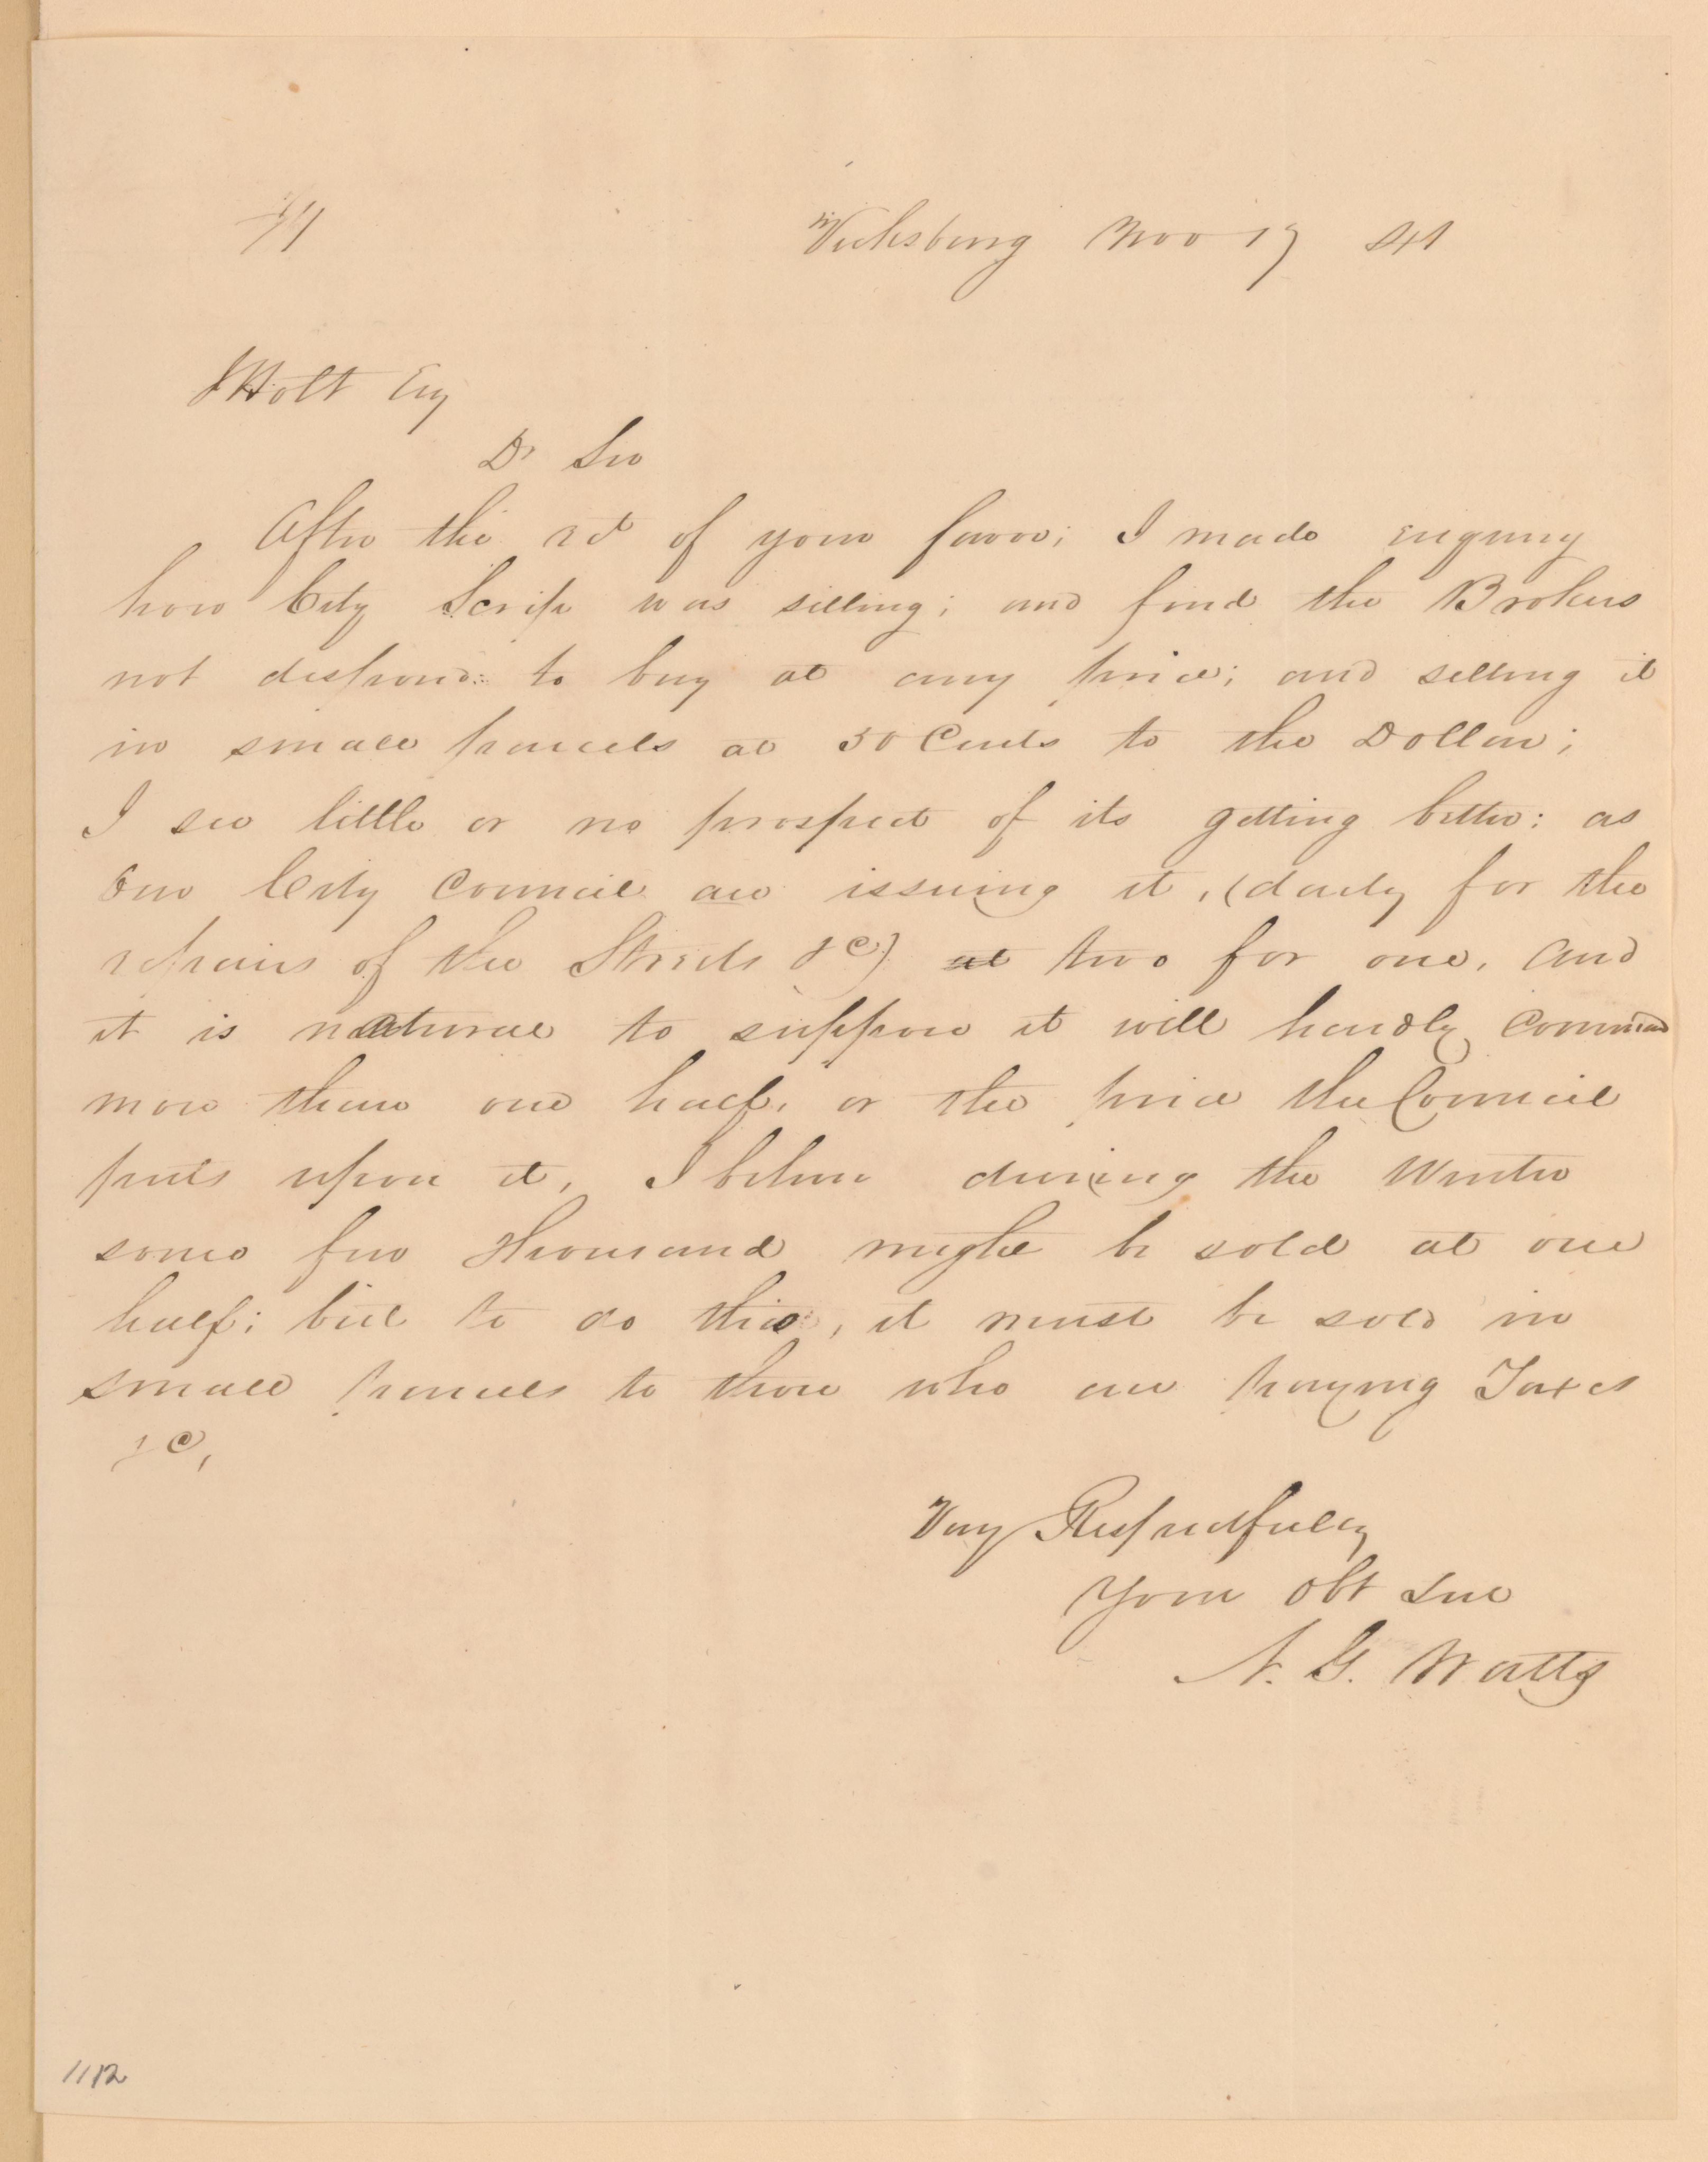 Vicksburg Nov 17 41
J Holt Esq
Dr Sir
After the rct of your favor; I made enquiry
how City Scrip was selling; and find the Brokers
not disposed to buy at any price; and selling it
in small parcels at 50 Cents to the Dollar;
I see little or no prospect of its getting better: as
Our City Council are issuing it, (daily for the
repairs of the Streets &c) at two for one, and
it is natural to suppose it will hardly command
more than one half, or the price the Council
puts upon it, I believe during the Winter
some few Thousand might be sold at one
half; but to do this, it must be sold in
small parcels to those who are paying Taxes
&c,
Very Respectfully
Your Obt Svt
A. G. Watts
1182